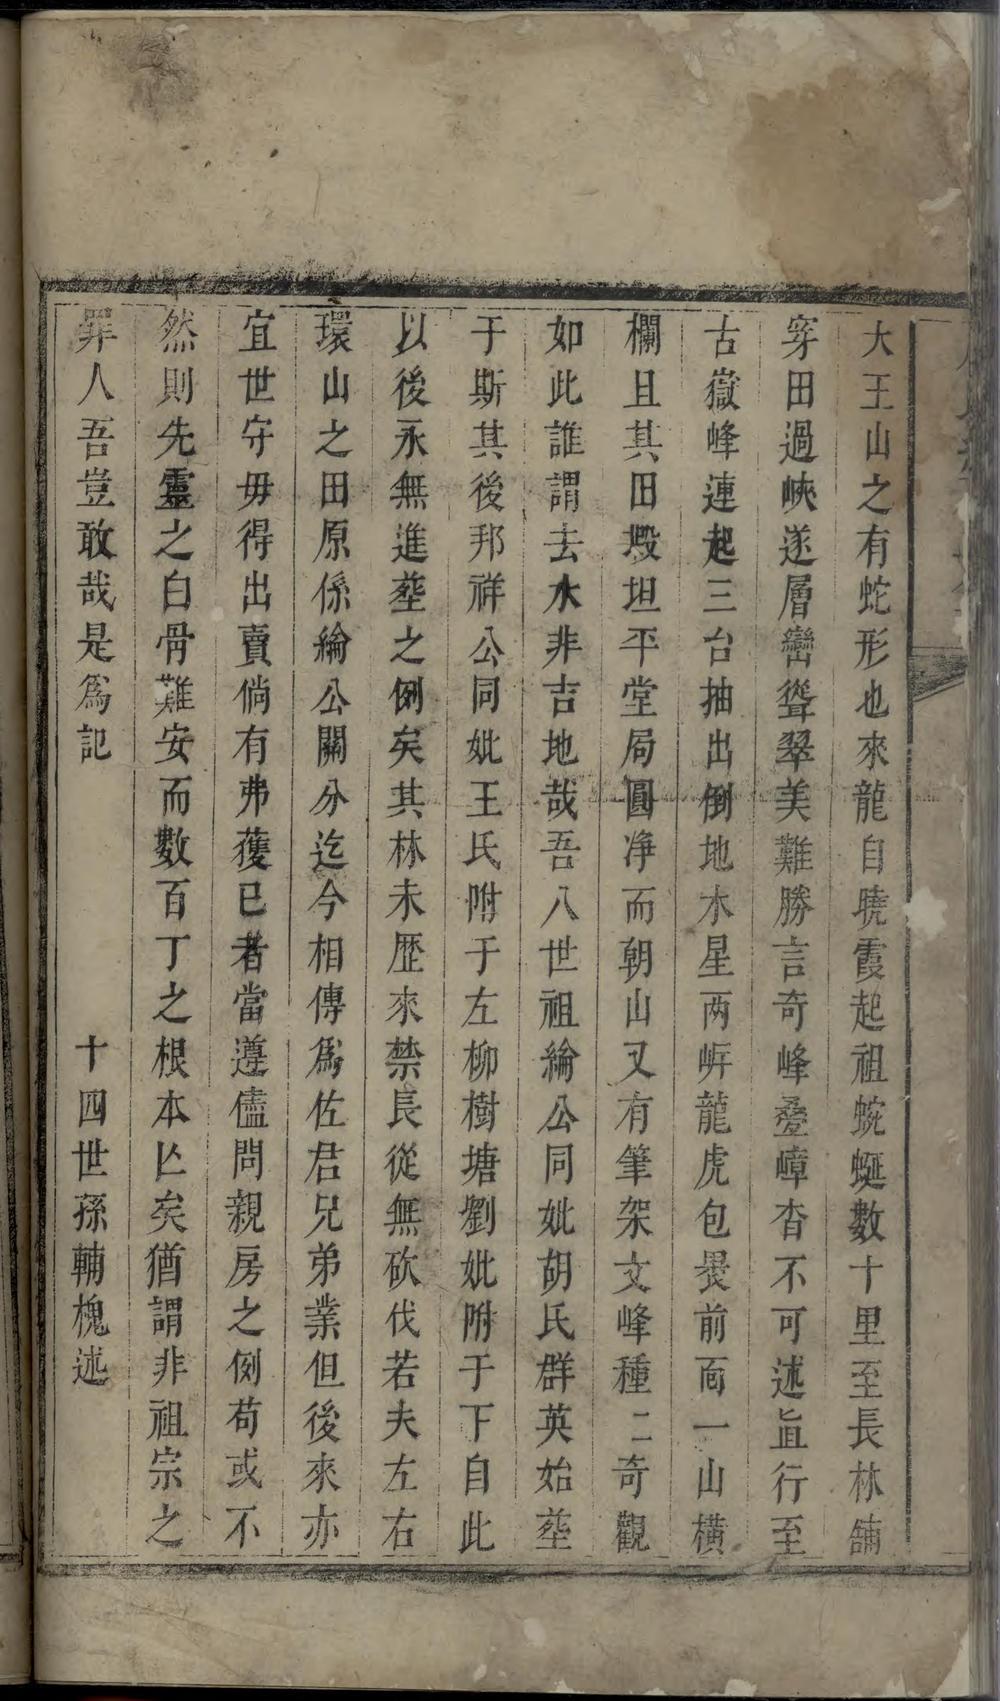 大王山之有蛇形也來龍自曉霞起祖蜿蜒數十里至長林舖
穿田過峽遂層巒聳翠美難勝言奇峰疊嶂杳不可述直行至
古嶽峰連起三台抽出倒地木星两㟁龍虎包褁前面一山橫
欄且其田㙮坦平堂局圓净而朝山又有筆架文峰種二奇觀
如此誰謂去水非吉地哉吾八世祖綸公同妣胡氏群英始塟
于斯其後邦祥公同妣王氏附于左柳樹塘劉妣附于下自此
以後永無進塟之例矣其林木歷來禁長從無砍伐若夫左右
環山之田原係綸公關分迄今相傳爲佐君兄弟業但後來亦
宜世守毋得出賣倘有弗獲已者當遵儘問親房之例苟或不
然則先靈之白骨難安而數百丁之根本亡矣猶謂非祖宗之
罪人吾豈敢哉是爲記
十四世孫輔槐述